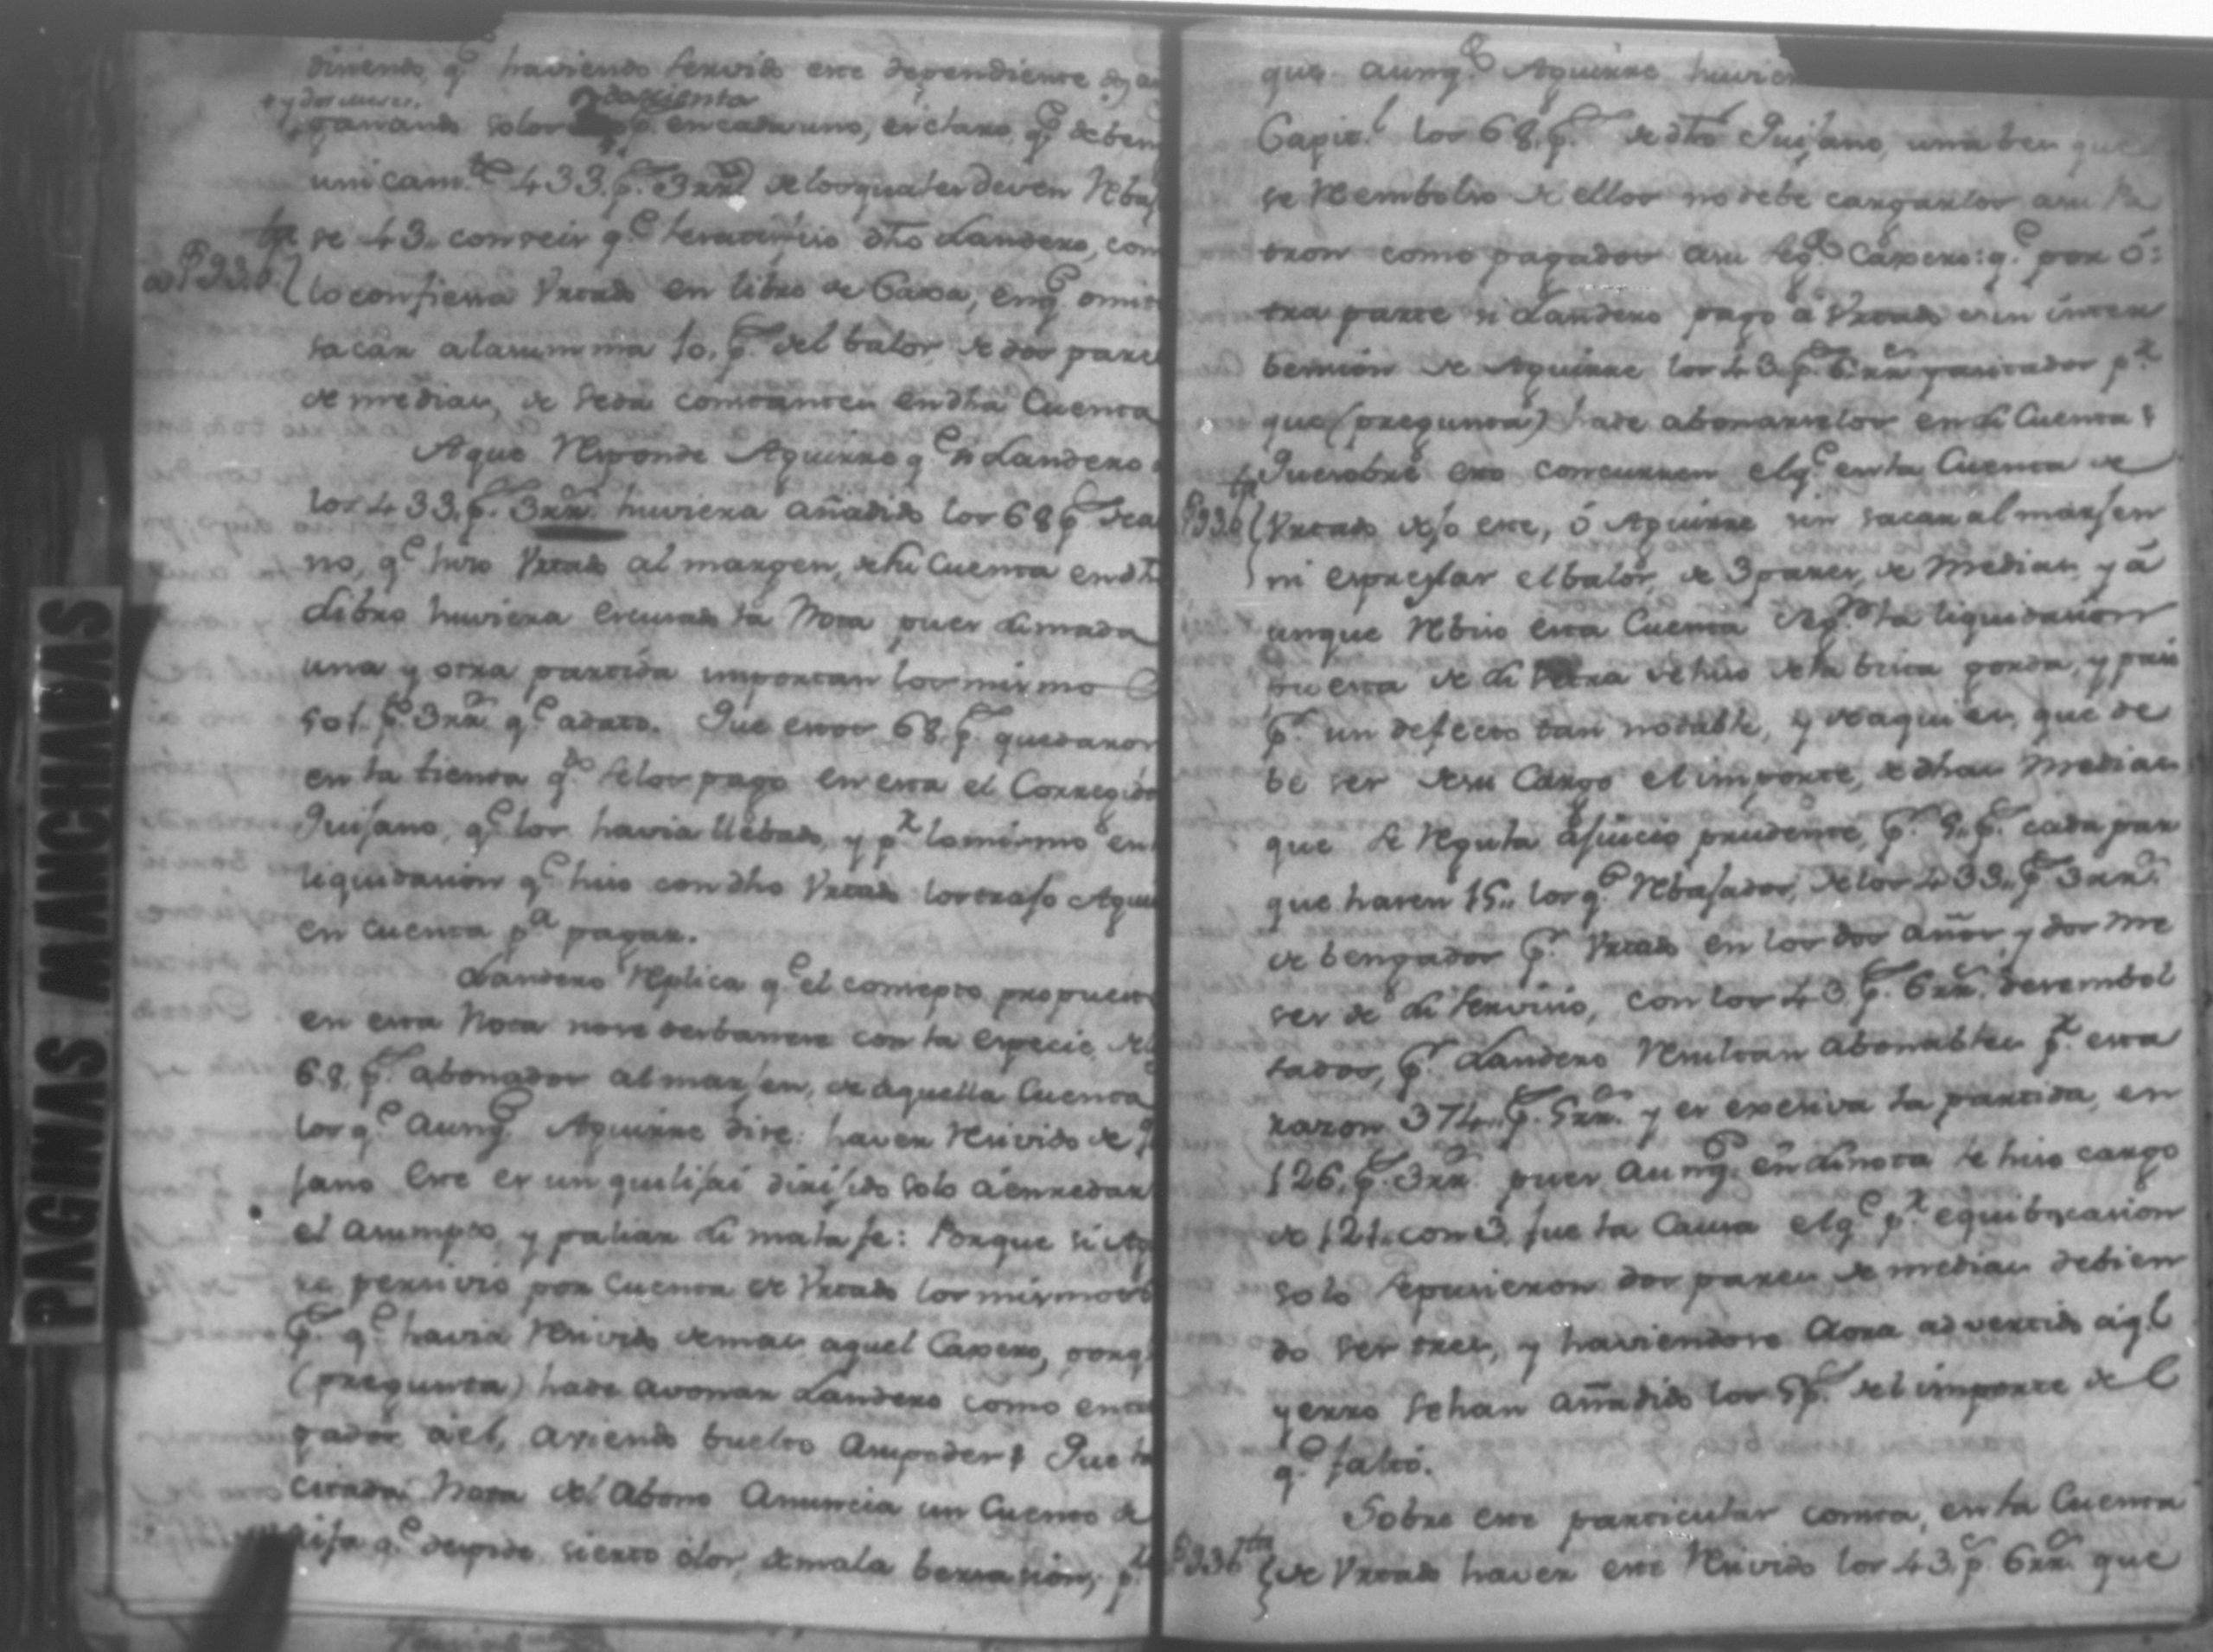 diciendo, q.e haviendo servido este dependiente dos a
+ y dos meses. doscientos
ganando solos p.s en cada uno, es claro, q.e deben
unicam.te 433. p.s 3 rr.s de los quales deven Reba
se 43. con seis q.e le satisfizo dho Landero, com
lo confiesa Vrtado en libro de Caxa, en q.e omit
sacar a la summa 10. p.s del balor de dos pare
de medias, de seda constantes en dha Cuenta
A que Responde Aguirre q.e si Landero a
los 433. p.s 3 rr.s huviera añadido los 68 p.s de a
no, q.e hizo Vrtado al margen, de su Cuenta en dho
Libro huviera escusado la Nota pues sumada
una y otra partida importan lo mismo
501. p.s 3 rr.s q.e adato. Que estos 68. p.s quedaron
en la tienda q.do se los pago en esta el Corregido
Quijano, q.e los havia llebado, y p.r lo mismo en
liquidasion q.e hizo con dho Vrtado los traxo Agui
en cuenta p.a pagar.
Landero Replica q.e el consepto propuesto
en esta Nota no se desbanese con la especie, de l
68. p.s abonados al marjen, de aquella Cuenta
los q.e aunq.e Aguirre dise: haver Resivido de Q
jano Este es un quilisai dirijido solo a enrredar
el asumpto, y paliar su mala fe: Porque si Ag
re persivio por Cuenta de Vrtado los mismos 6
p.s q.e havia Resivido demas aquel Caxero, porq.
(pregunta) ha de avonar Landero como entre
gados a el, aviendo buelto a su poder? Que la
citada Nota del Abono Anuncia un Cuento de
rifa q.e despide sierto olor, de mala bersasion, p.r
que aunq.e Aguirre huvier
Capit.l los 68. p.s de dho Quijano, una bes que
se Rembolso de ellos no debe cargarlos a su Pa
tron como pagados a su seg.do Caxero: q.e por o
tra parte si Landero pagó á Vrtado es in inter
bension de Aguirre los 43. p.s 6 rr.s yasitados p.r
que (pregunta) ha de abonarselos en su Cuenta?
Que sobre esto concurren el q.e en la Cuenta de
Vrtado dejo este, ó Aguirre sin sacar al marjen
ni espresar el balor, de 3 pares, de Medias, y á
unque Rebiso esta Cuenta seg.n la liquidasion
puesta de su Letra se hizo de la bista gorda, y paso
p.r un defecto tan notable, y de aqui es, que de
be ser de su Cargo el importe, de dhas Medias
que se Regula a juicio prudente, p.r 5. p.s cada par
que hasen 15,, los q.e Rebajados, de los 433,, p.s 3 rr.s
debengados p.r Vrtado en los dos años, y dos me
ses de su servisio, con los 43. p.s 6 rr.s desembol
sados, p.r Landero Resultan abonables p.r esta
razon 374,, p.s 5 rr.s y es exesiva la partida, en
126. p.s 3 rr.s pues aunq.e en su nota se hizo cargo
de 121. con 3. fue la Causa el q.e p.r equibocasion
solo se pusieron dos pares de medias debien
do ser tres, y haviendose Aora advertido aq.l
yerro se han añadido los 5 p.s del importe del
q.e faltó.
Sobre este particular consta, en la Cuenta
de Vrtado haver este Resivido los 43. p.s 6 rr.s que
PAGINAS MANCHADAS